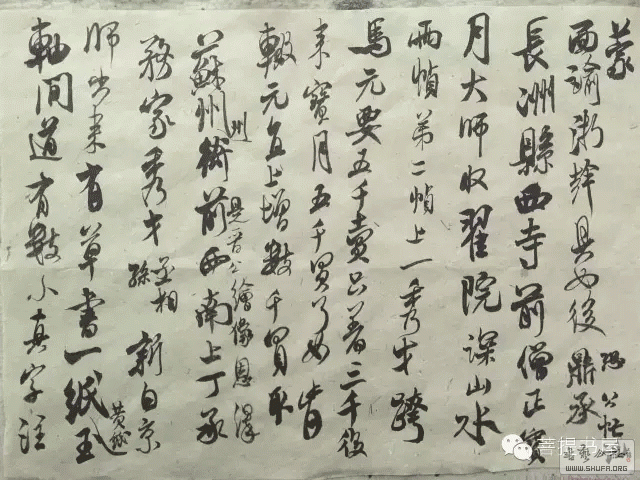 蒙
面谕浙幹具如後 恐公忙
鼎承
長洲縣西寺前僧正寶
月大師收翟院深山水
兩幀第二幀上一秀才跨
馬元要五千賣只著三千後
来寶月五千買了如肯
輟元直上增數千買取
蘇州 州 衙前西南上丁承
務家秀才 是晉公繪像恩澤
丞相孫 新自京
師出来有草書一紙玉
軸間道有數小真字注 黄絹
菩提书
www.SHUFA.ORG